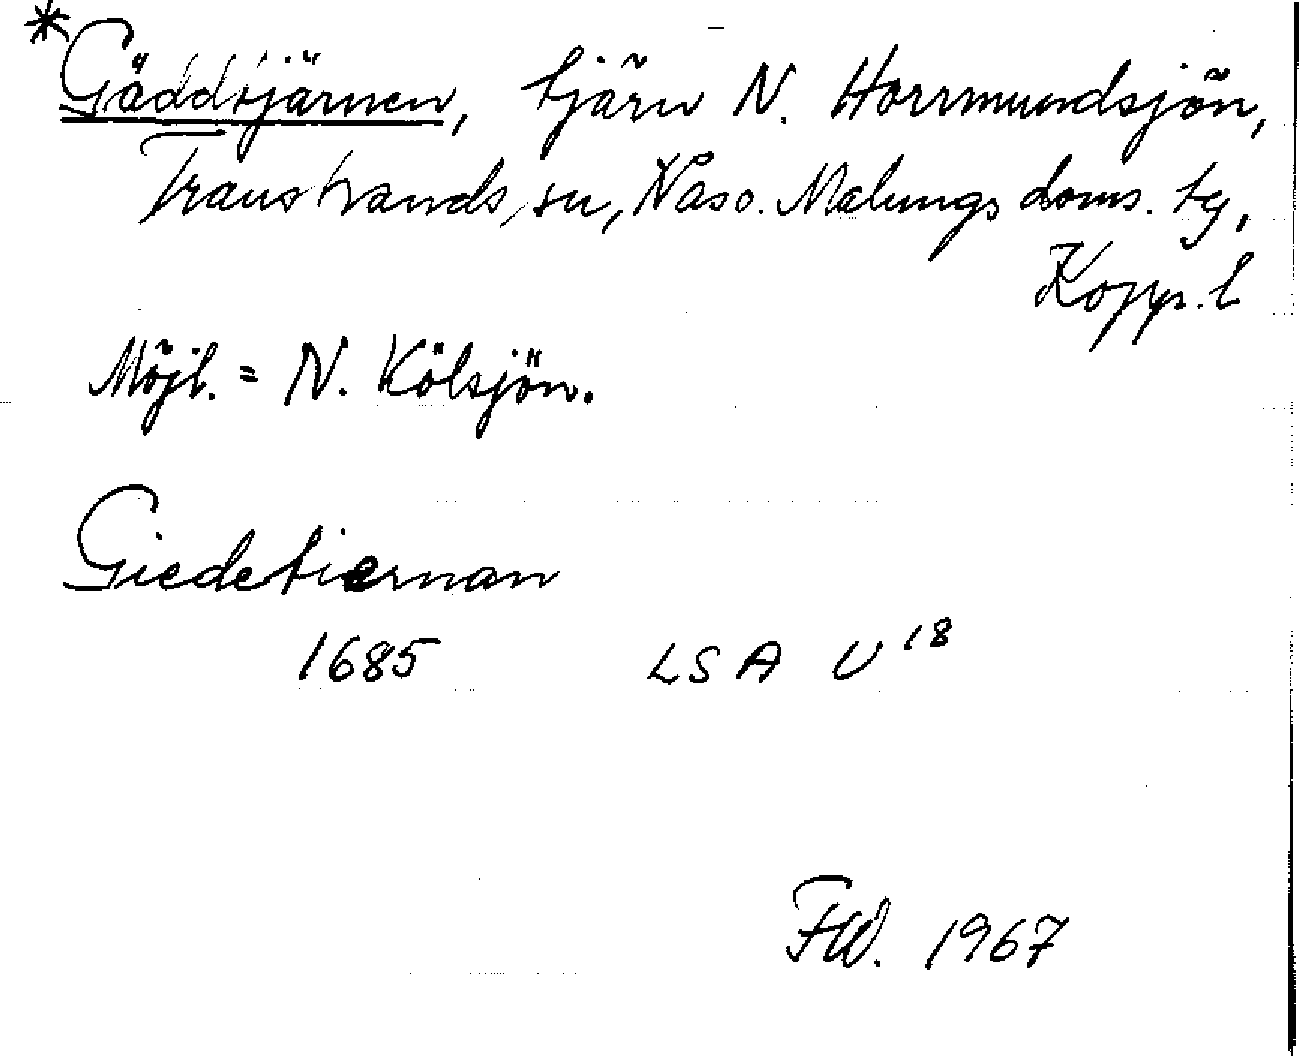 *Gäddtjärnen, tjärn N. Horrmundsjön,
Transtrands sn, Nås o. Malungs doms. tg,
Kopp. l
Möjl. = N. Kölsjön.
Giedetiernan
1685 LSA U18
FW. 1967